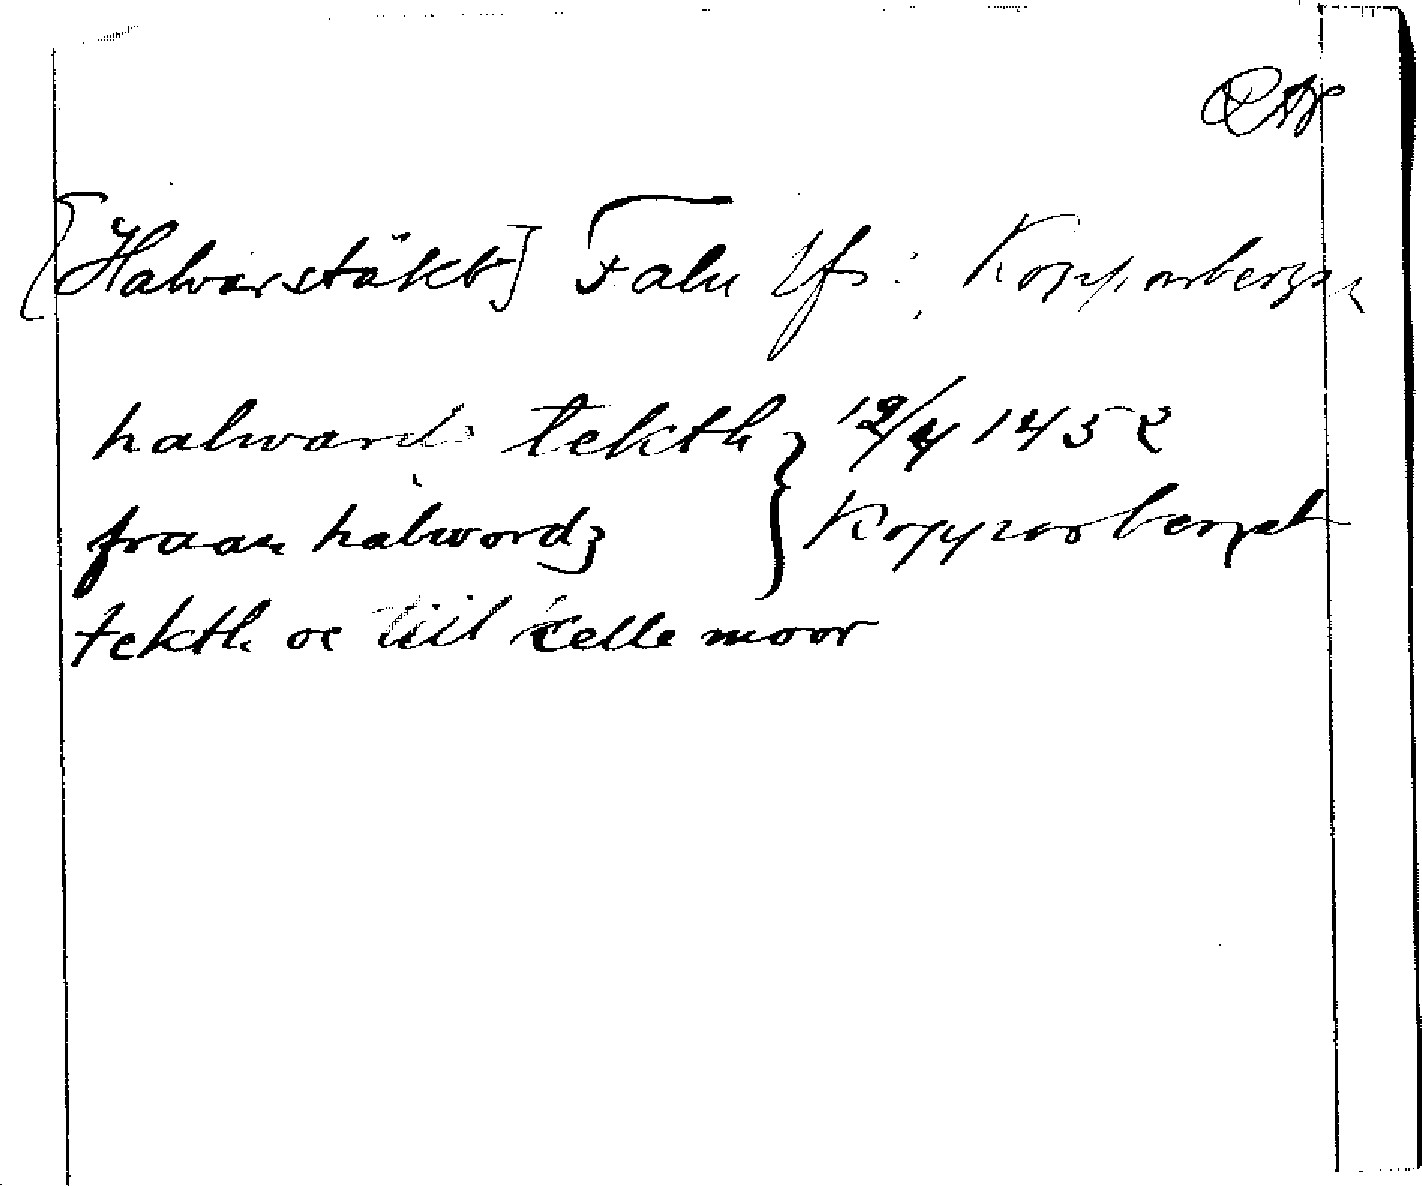 RAP
[Halvarstäkt] Falu lfs: Kopparbergs
halvards tekth } 12/4 1452
fraan halwordz } Kopparberget
tekth oc till kellemoor